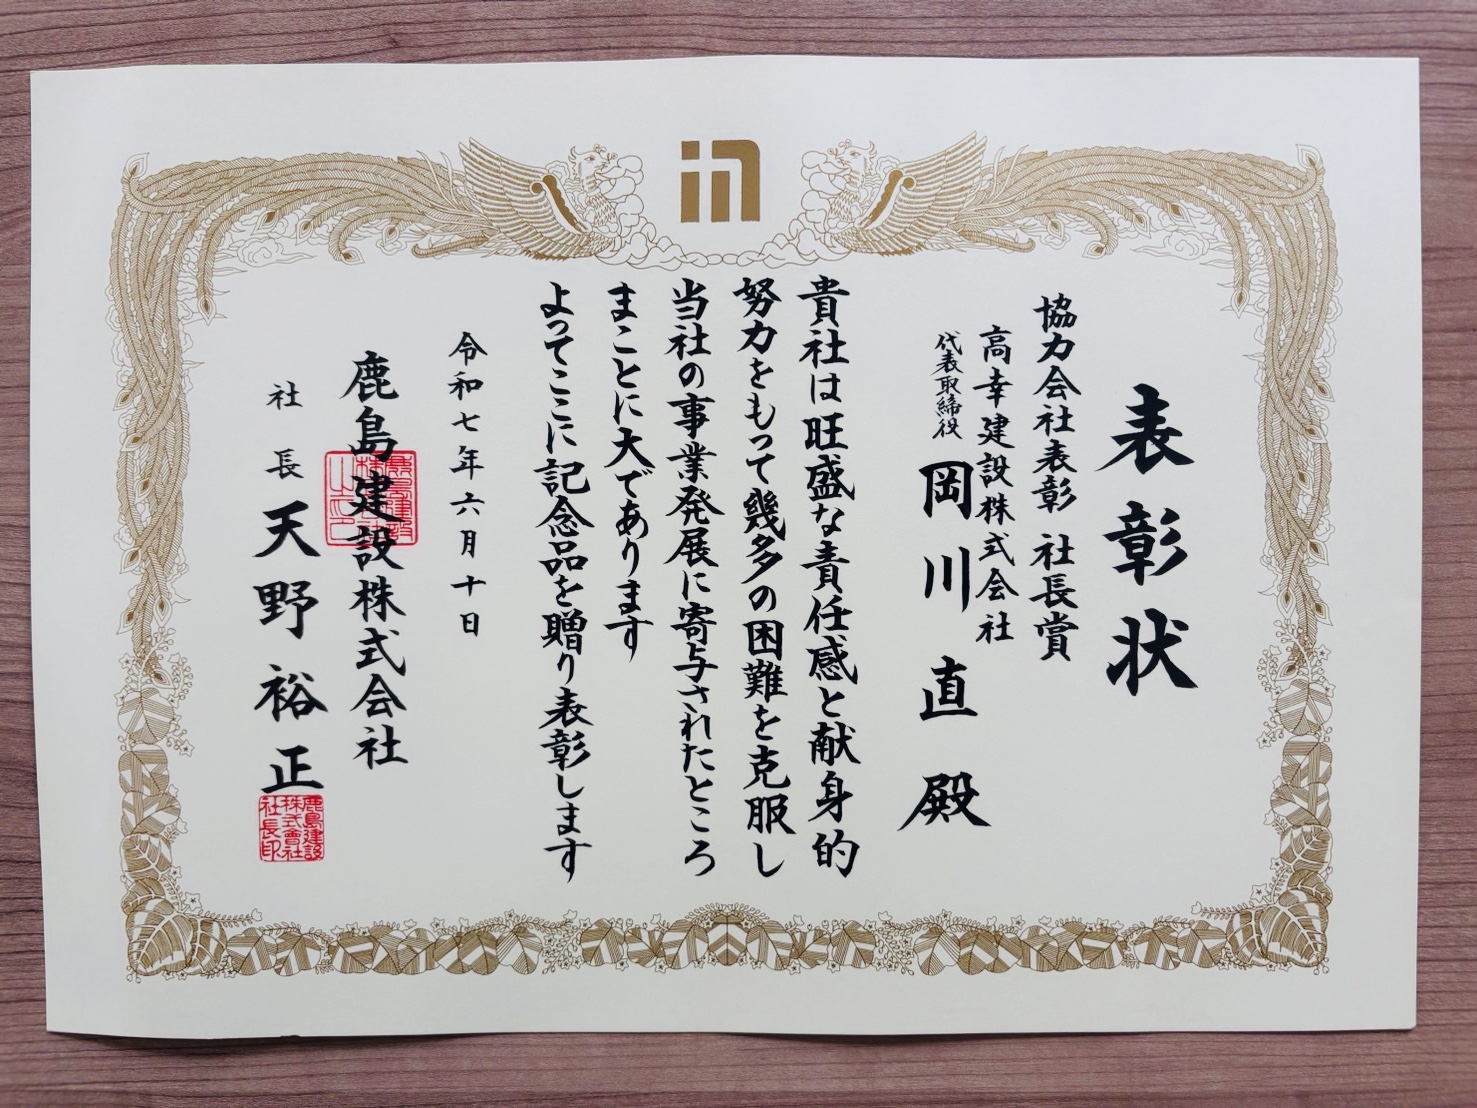 表彰状
協力会社表彰 社長賞
高幸建設株式会社
代表取締役 岡川直殿
貴社は旺盛な責任感と献身的
努力をもって幾多の困難を克服し
当社の事業発展に寄与されたところ
まことに大であります
よってここに記念品を贈り表彰します
令和七年六月十日
鹿島建設株式会社
社長 天野裕正
鹿島建設
株式會社
社長印